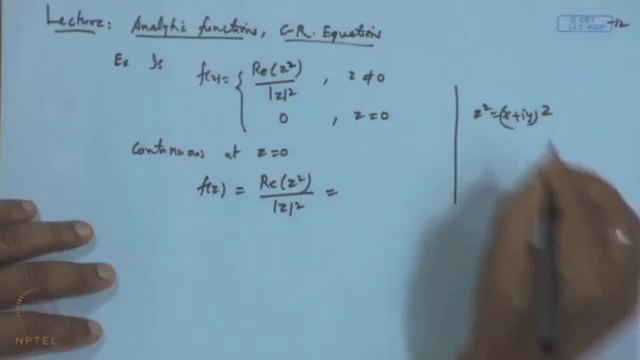 Lecture: Analytic functions, C-R. Equations
Ex Is f(z) = { Re(z²)/|z|² , z ≠ 0
0 , z = 0
Continuous at z = 0
f(z) = Re(z²)/|z|² =
z² = (x + iy)²
NPTEL